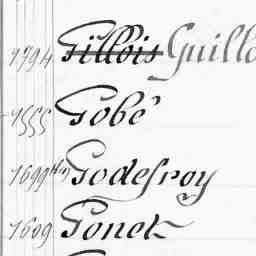 1794 Gillois Guillo
1555 Gobé
1699 Godefroy
1609 Gonet